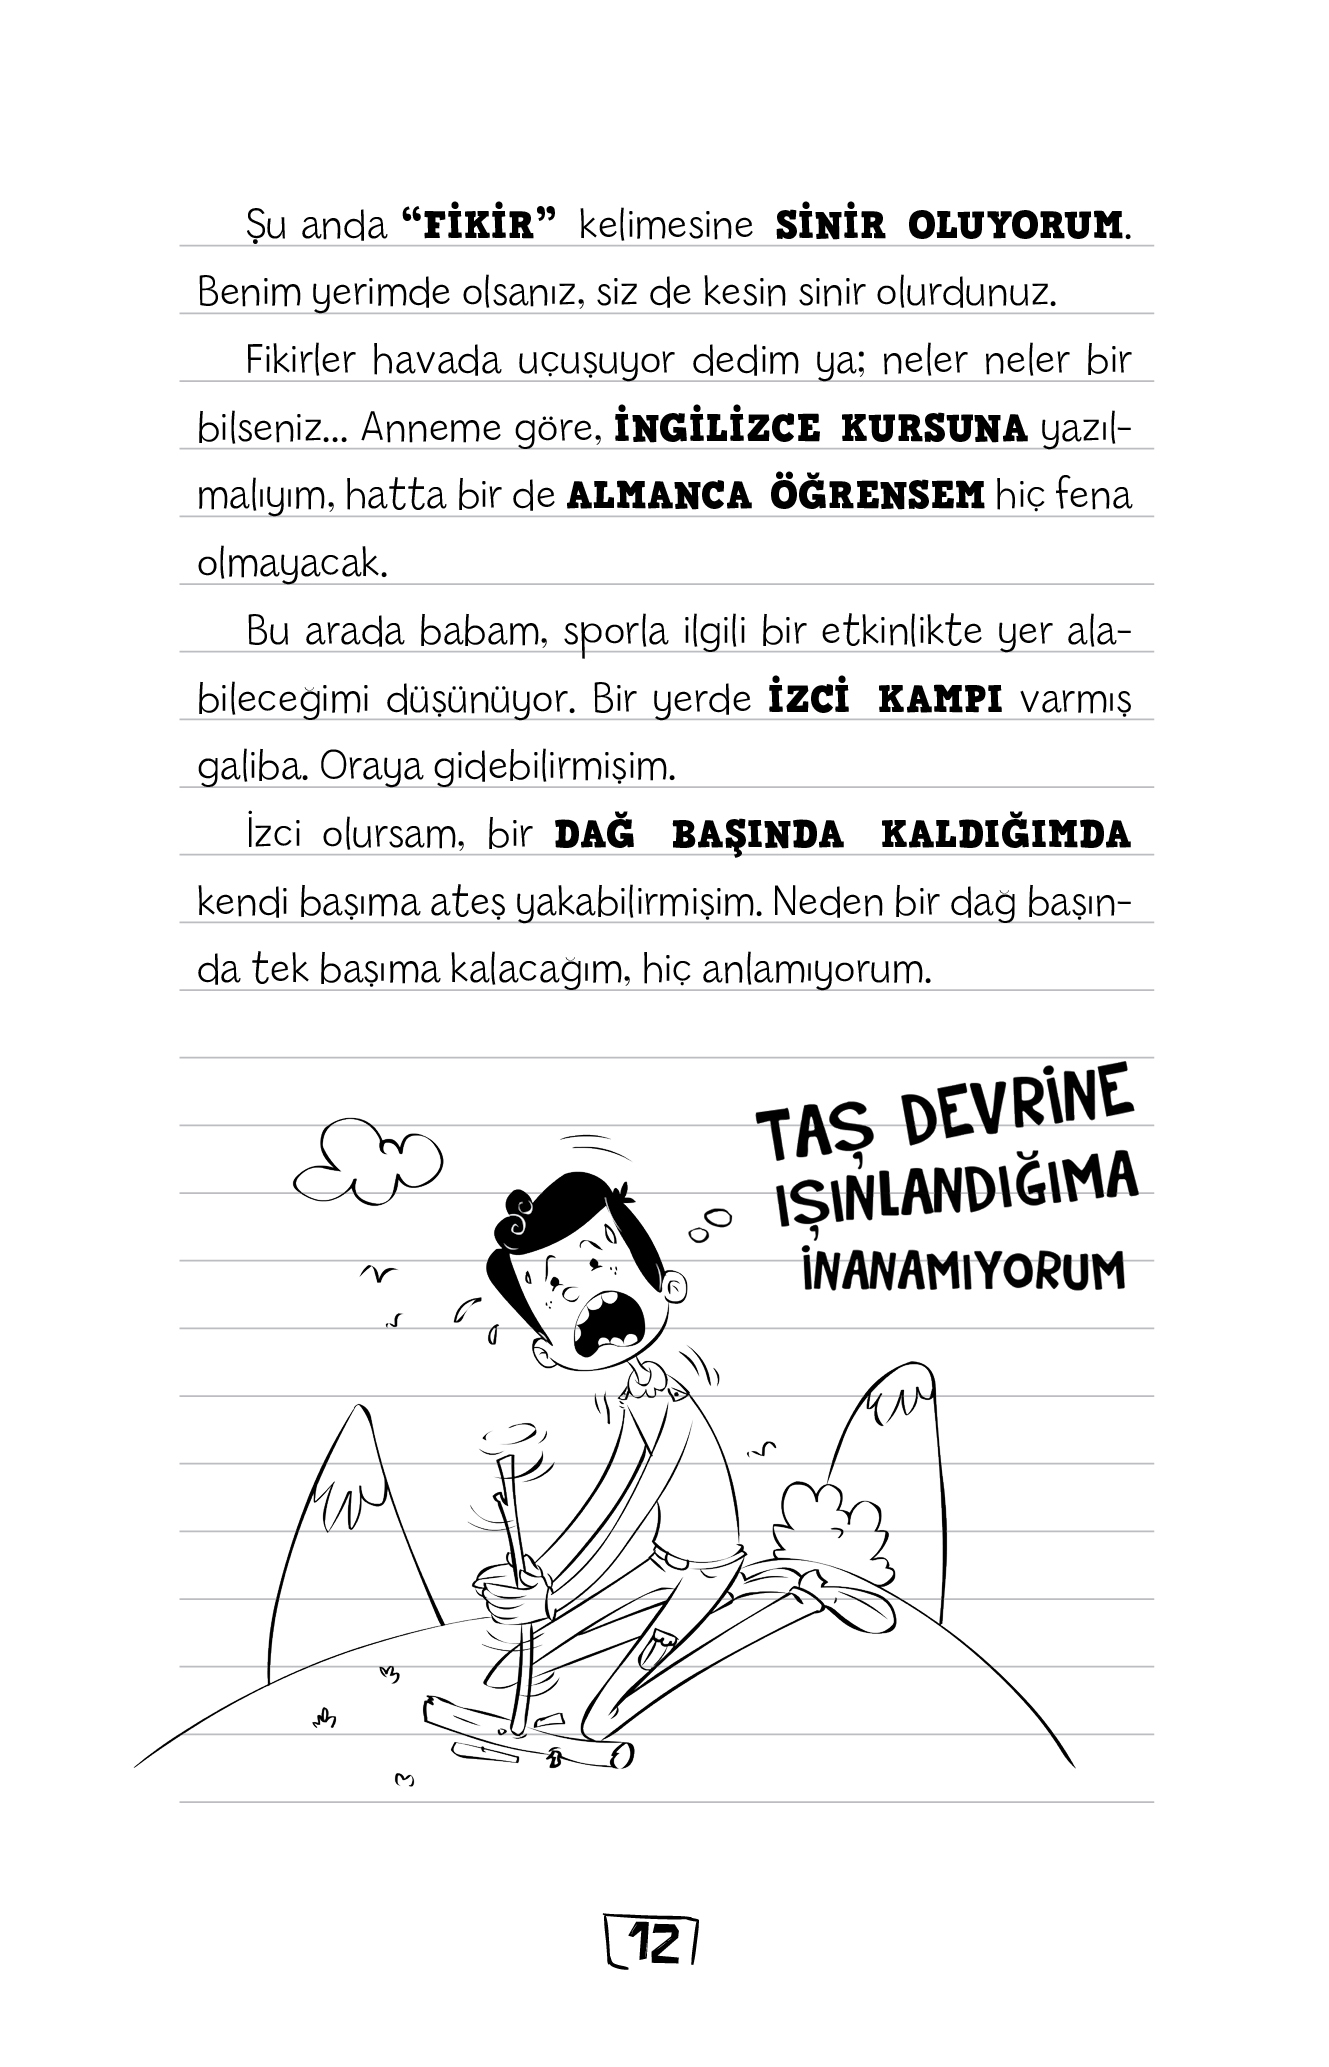 Şu anda “FİKİR” kelimesine SİNİR OLUYORUM.
Benim yerimde olsanız, siz de kesin sinir olurdunuz.
Fikirler havada uçuşuyor dedim ya; neler neler bir
bilseniz... Anneme göre, İNGİLİZCE KURSUNA yazıl-
malıyım, hatta bir de ALMANCA ÖĞRENSEM hiç fena
olmayacak.
Bu arada babam, sporla ilgili bir etkinlikte yer ala-
bileceğimi düşünüyor. Bir yerde İZCİ KAMPI varmış
galiba. Oraya gidebilirmişim.
İzci olursam, bir DAĞ BAŞINDA KALDIĞIMDA
kendi başıma ateş yakabilirmişim. Neden bir dağ başın-
da tek başıma kalacağım, hiç anlamıyorum.
TAŞ DEVRİNE
IŞINLANDIĞIMA
İNANAMIYORUM
12